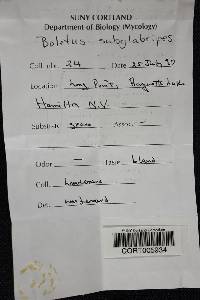 SUNY CORTLAND
Department of Biology (Mycology)
Boletus subglabripes
Coll. no. 24 Date 25 July 90
Location Long Point, Raquette Lake
Hamilton N.Y.
Substrate grass Assoc. -
Odor - Taste bland
Coll.
Det.
CORT005934